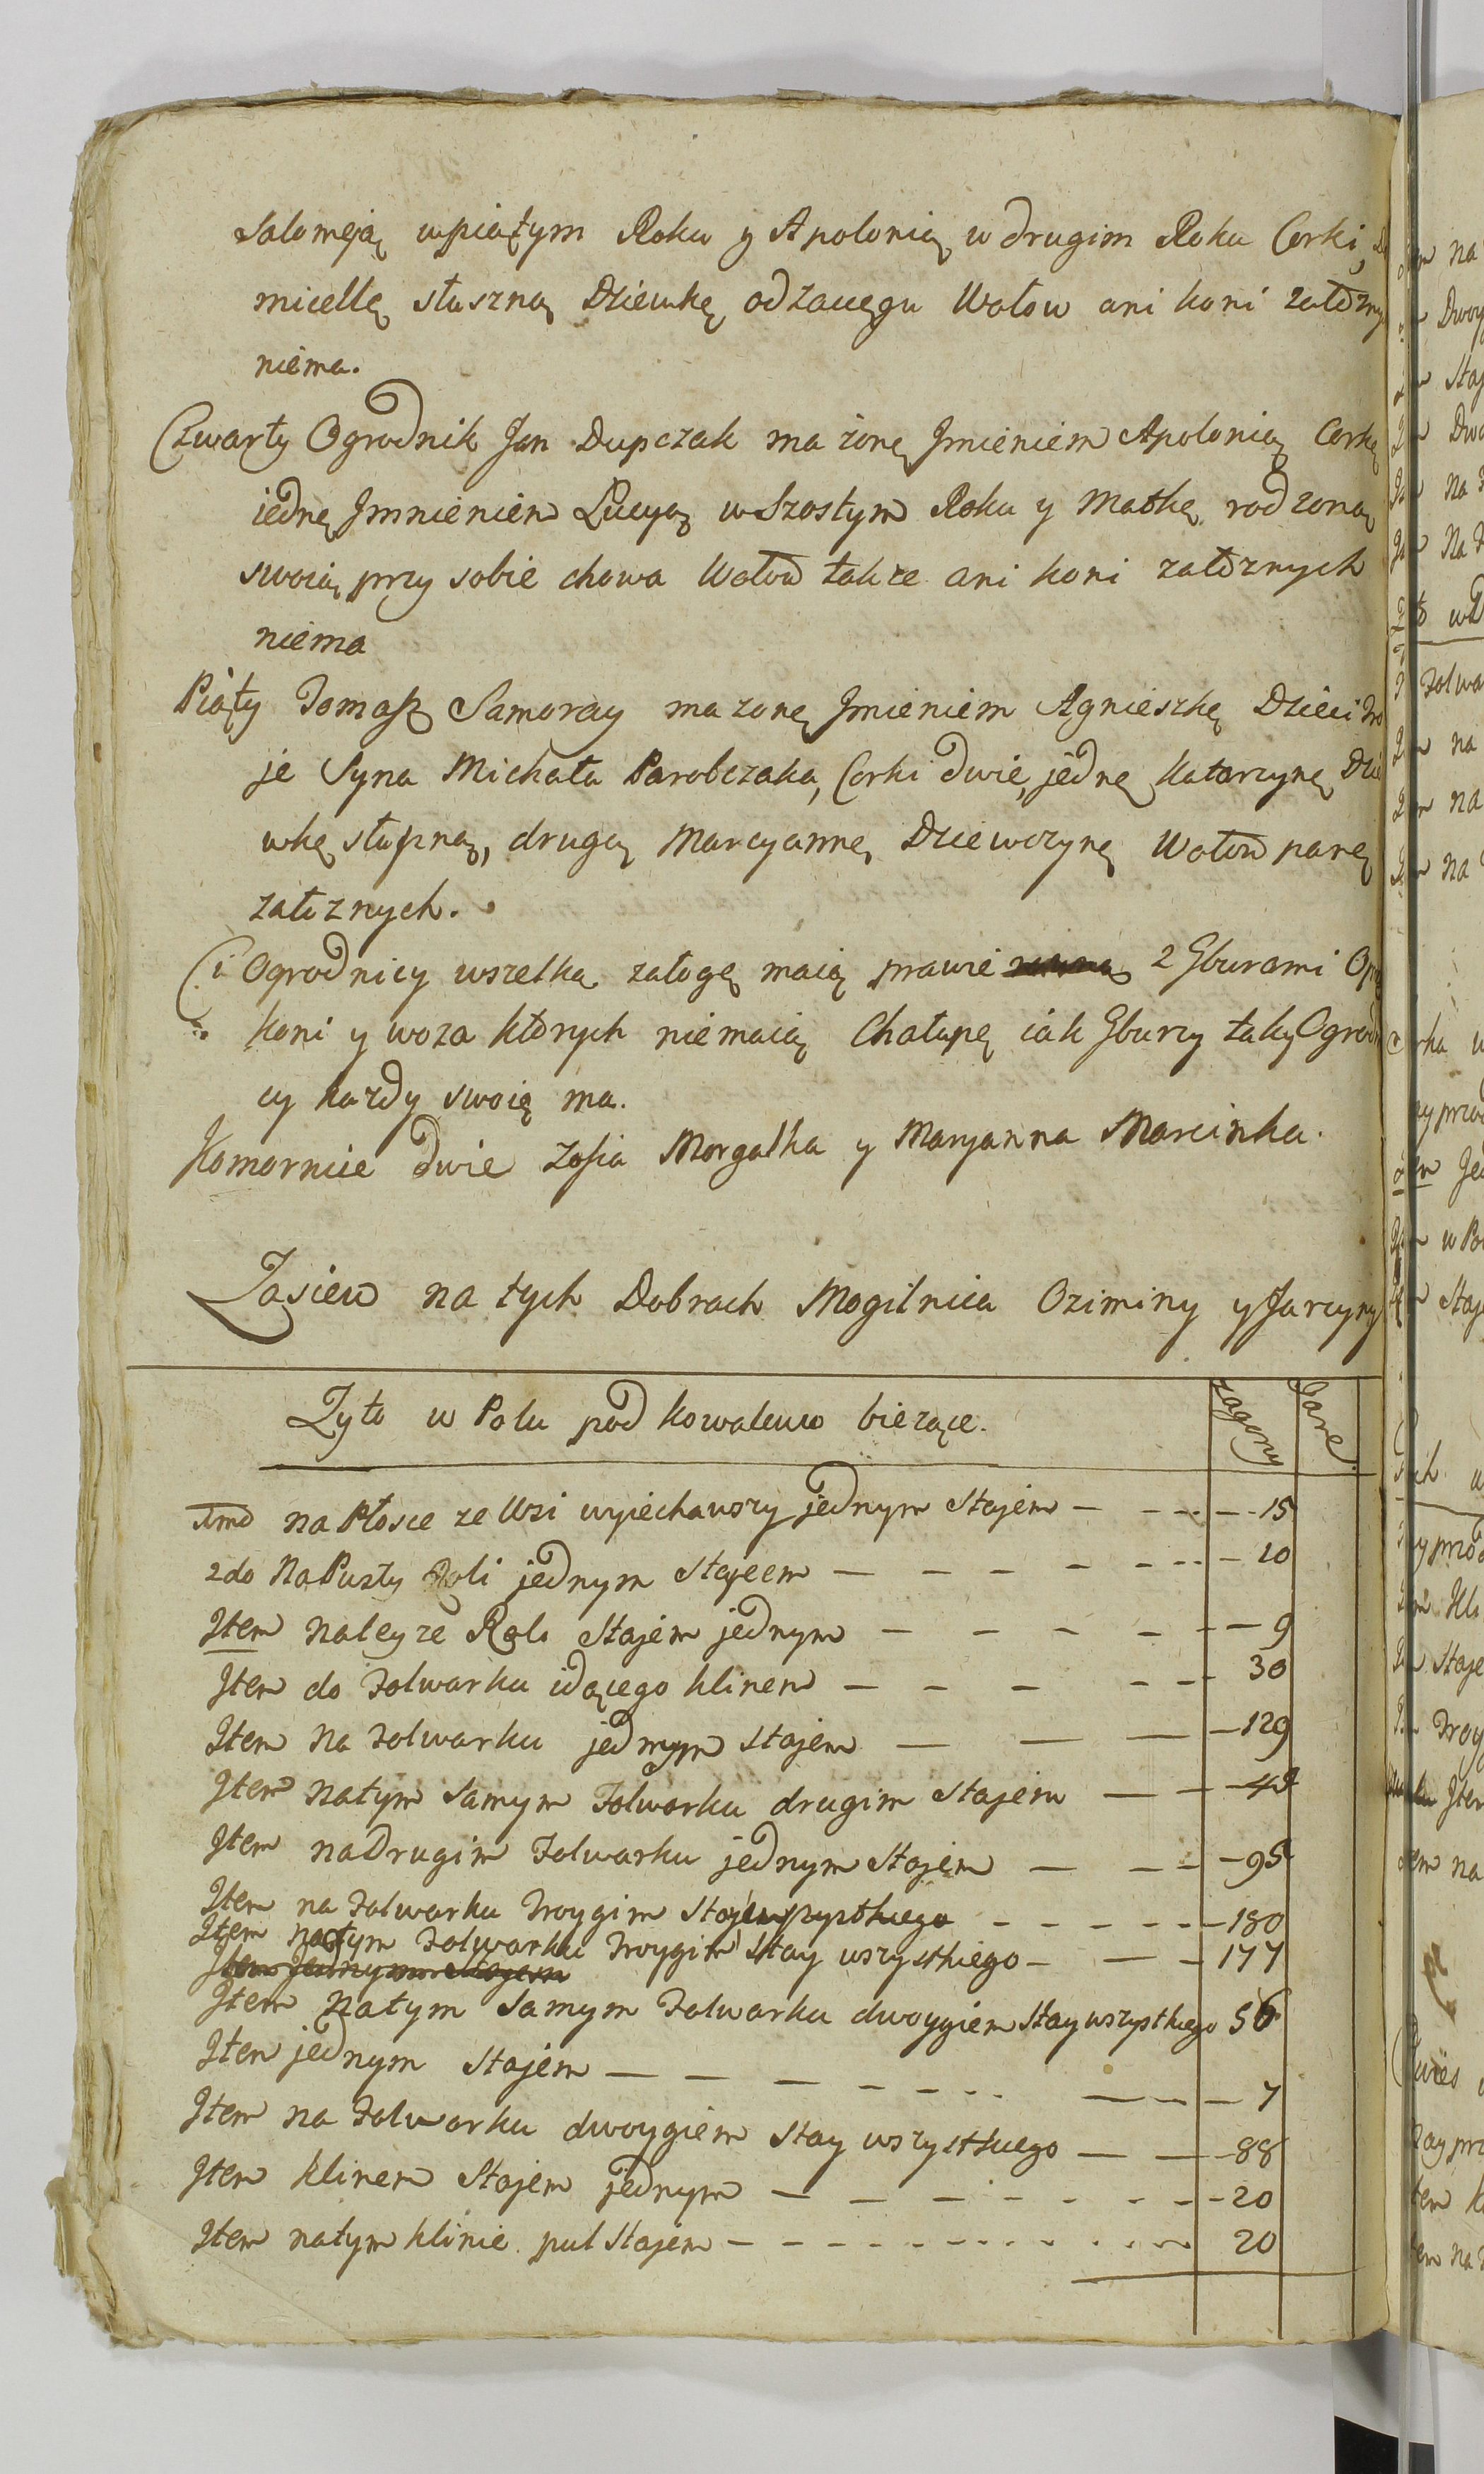 Salomeją w piątym Roku y Apolonią w drugim Roku Corki,
micellę słuszną Dziewkę odzaięgu Wołow ani koni załoznych
niema.
Czwarty Ogrodnik Jan Dupczak ma żonę Jmieniem Apolonią Corkę
iednę Jmnieniem Lucyą w Szostym Roku y Matkę rodzoną
swoię przy sobie chowa Wołow także ani koni załoznych
niema
Piąty Tomasz Samoray ma zonę Jmieniem Agnieszkę Dzieci tro
je Syna Michała Parobczaka, Corki dwie, jednę Katarzynę Dzie
wkę słuszną, drugą Maryannę Dziewczynę Wołow parę
załoznych.
Ci Ogrodnicy wszelką załogę maią prawie z Gburami
koni y woza ktorych niemaią Chałupę iak Gburzy tak y Ogrodni
cy kazdy swoię ma.
Komornice dwie Zofia Morgalka y Maryanna Marcinka.
Zasiew na tych Dobrach Mogilnica Oziminy y Jarzyny
Zyto w Polu pod Kowalewo bieżące. zagony Jare
1mo na Płosce ze Wsi wyiechawszy jednym Stajem — 15
2do Na Pusty Roli jednym Stajeem — 20
Item na teyze Roli Stajem jednym — 9
Item do Folwarku idącego klinem — 30
Item Na Folwarku jednym stajem — 129
Item na tym Samym Folwarku drugim Stajem — 48
Item na Drugim Folwarku jednym Stajem — 95
Item na Folwarku Troygim Stajem wszystkiego — 180
Item na tym Folwarku Troygim Stay wszystkiego — 177
Item Jednym Stajem
Item na tym Samym Folwarku dwoygiem Stay wszystkiego 56
Item jednym Stajem — 7
Item na Folwarku dwoygiem Stay wszystkiego — 88
Item klinem Stajem jednym — 20
Item na tym klinie puł Stajem — 20